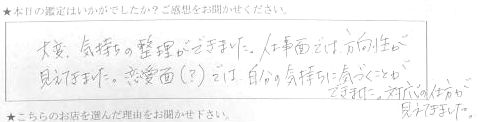 ★本日の鑑定はいかがでしたか？ご感想をお聞かせください。
大変、気持ちの整理ができました。仕事面では、方向性が
見えてきました。恋愛面(?)では、自分の気持ちに気づくことが
できました。対応の仕方が
見えてきました。
★こちらのお店を選んだ理由をお聞かせ下さい。